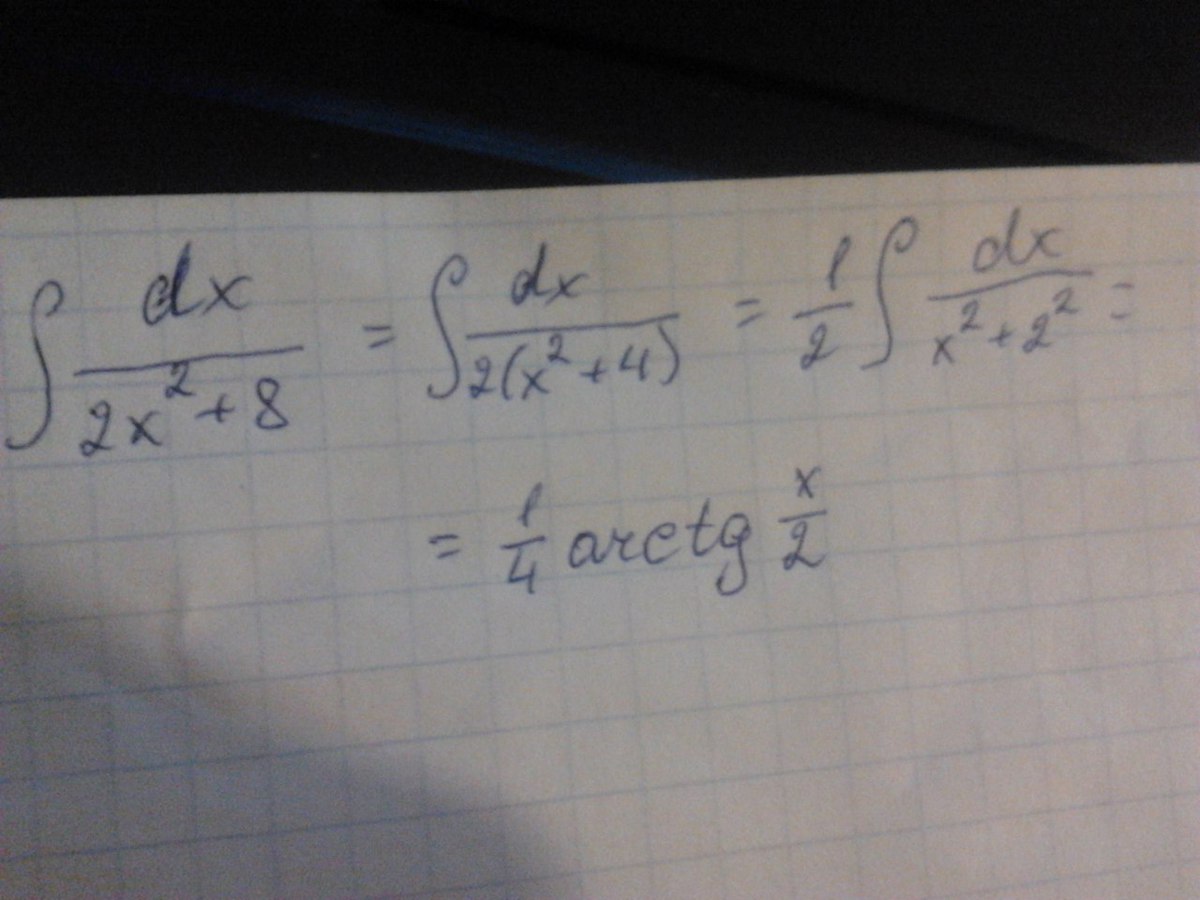 ∫ dx/(2x²+8) = ∫ dx/(2(x²+4)) = 1/2 ∫ dx/(x²+2²) =
= 1/4 arctg x/2